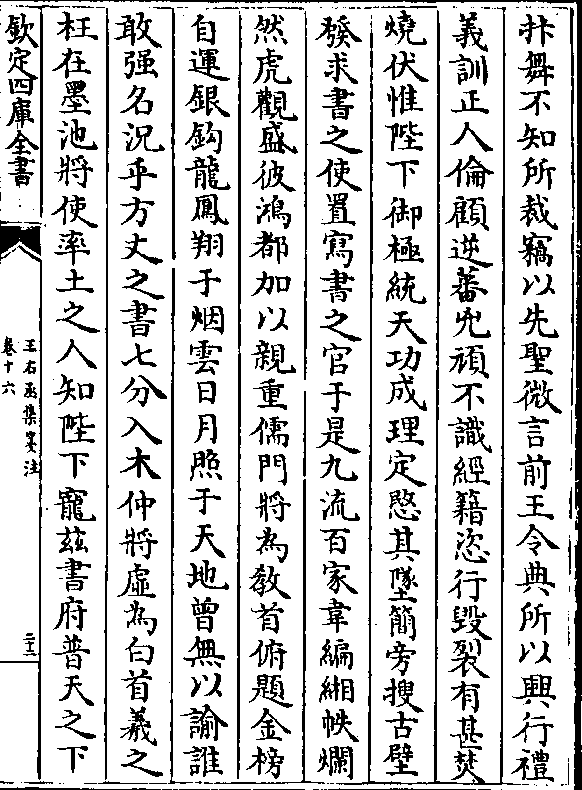 抃舞不知所裁竊以先聖微言前王令典所以興行禮
義訓正人倫顧逆蕃兇頑不識經籍恣行毀裂有甚焚
燒伏惟陛下御極統天功成理定愍其墜簡旁搜古壁
發求書之使置寫書之官于是九流百家韋編緗帙爛
然虎觀盛彼鴻都加以親重儒門將為教首俯題金榜
自運銀鉤龍鳳翔于烟雲日月照于天地曾無以諭誰
敢强名況乎方丈之書七分入木仲將虛為白首羲之
枉在墨池將使率土之人知陛下寵茲書府普天之下
欽定四庫全書
王右丞集箋注
卷十六
二十三